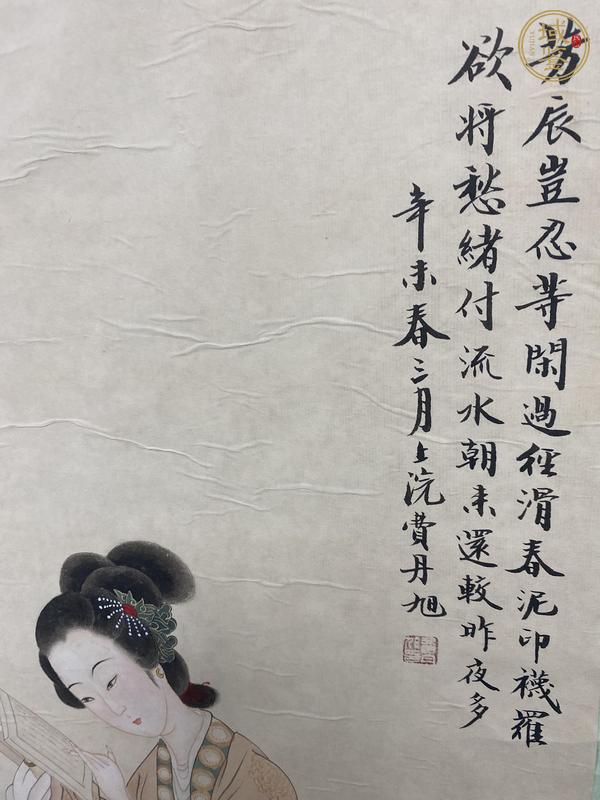 芳辰豈忍等閑過徑滑春泥印襪羅
欲將愁緒付流水朝来還較昨夜多
辛未春三月上浣費丹旭